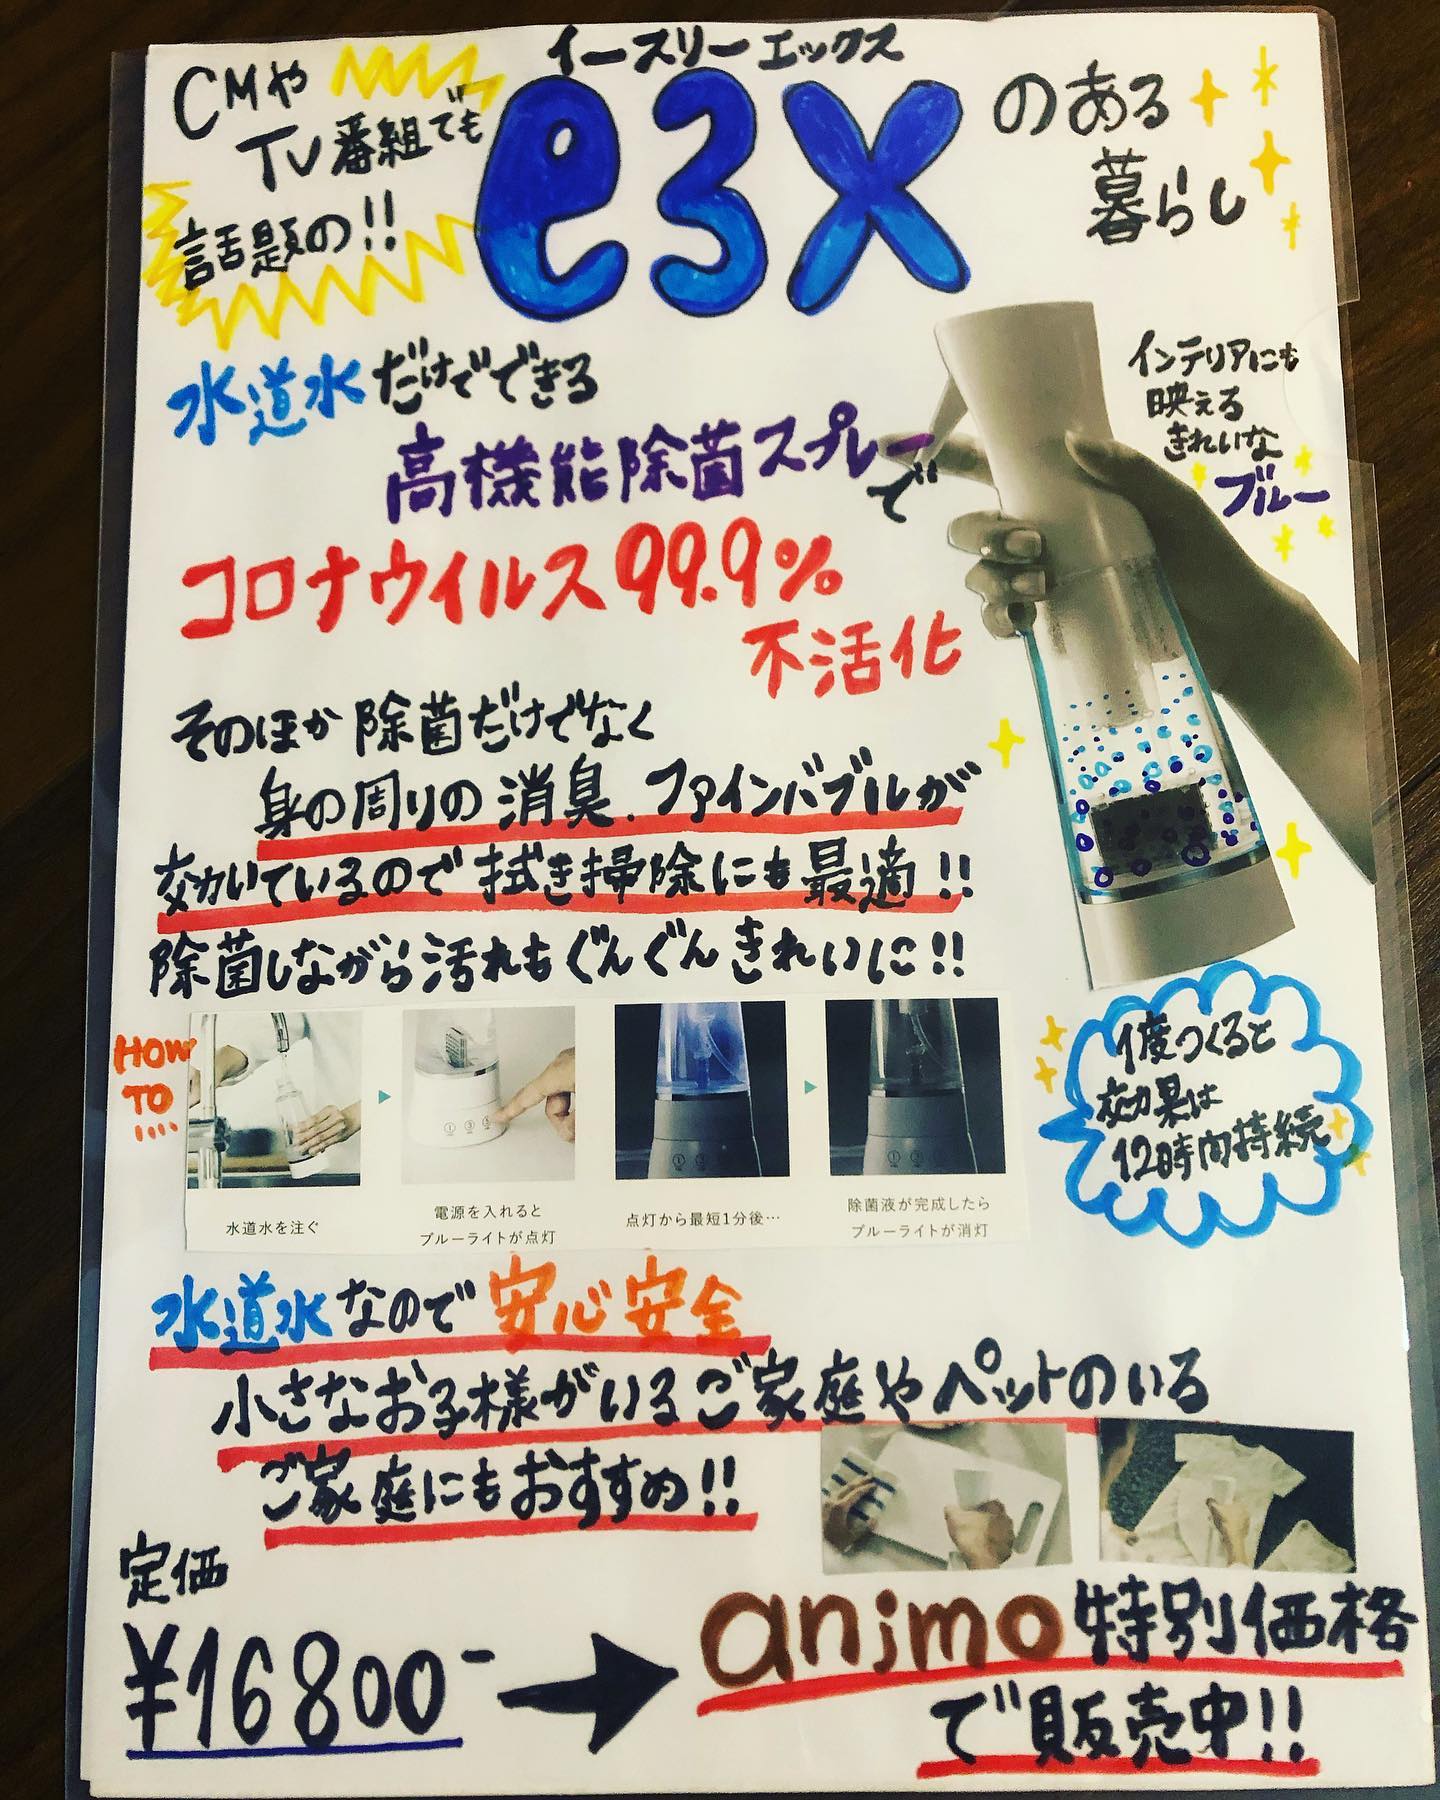 イースリーエックス
CMや
TV番組でも
話題の!!
e3x
のある
暮らし
水道水だけでできる
高機能除菌スプレーで
コロナウイルス99.9%
不活化
インテリアにも
映える
きれいな
ブルー
そのほか除菌だけでなく
身の周りの消臭、ファインバブルが
効いているので拭き掃除にも最適!!
除菌しながら汚れもぐんぐんきれいに!!
HOW
TO
水道水を注ぐ
電源を入れると
ブルーライトが点灯
点灯から最短1分後…
除菌液が完成したら
ブルーライトが消灯
1度つくると
効果は
12時間持続
水道水なので安心安全
小さなお子様がいるご家庭やペットのいる
ご家庭にもおすすめ!!
定価
¥16800-
→
animo特別価格
で販売中!!